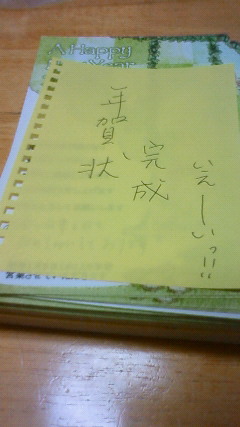 A Happy
Year
年賀状、
完成
いえーいっ!!